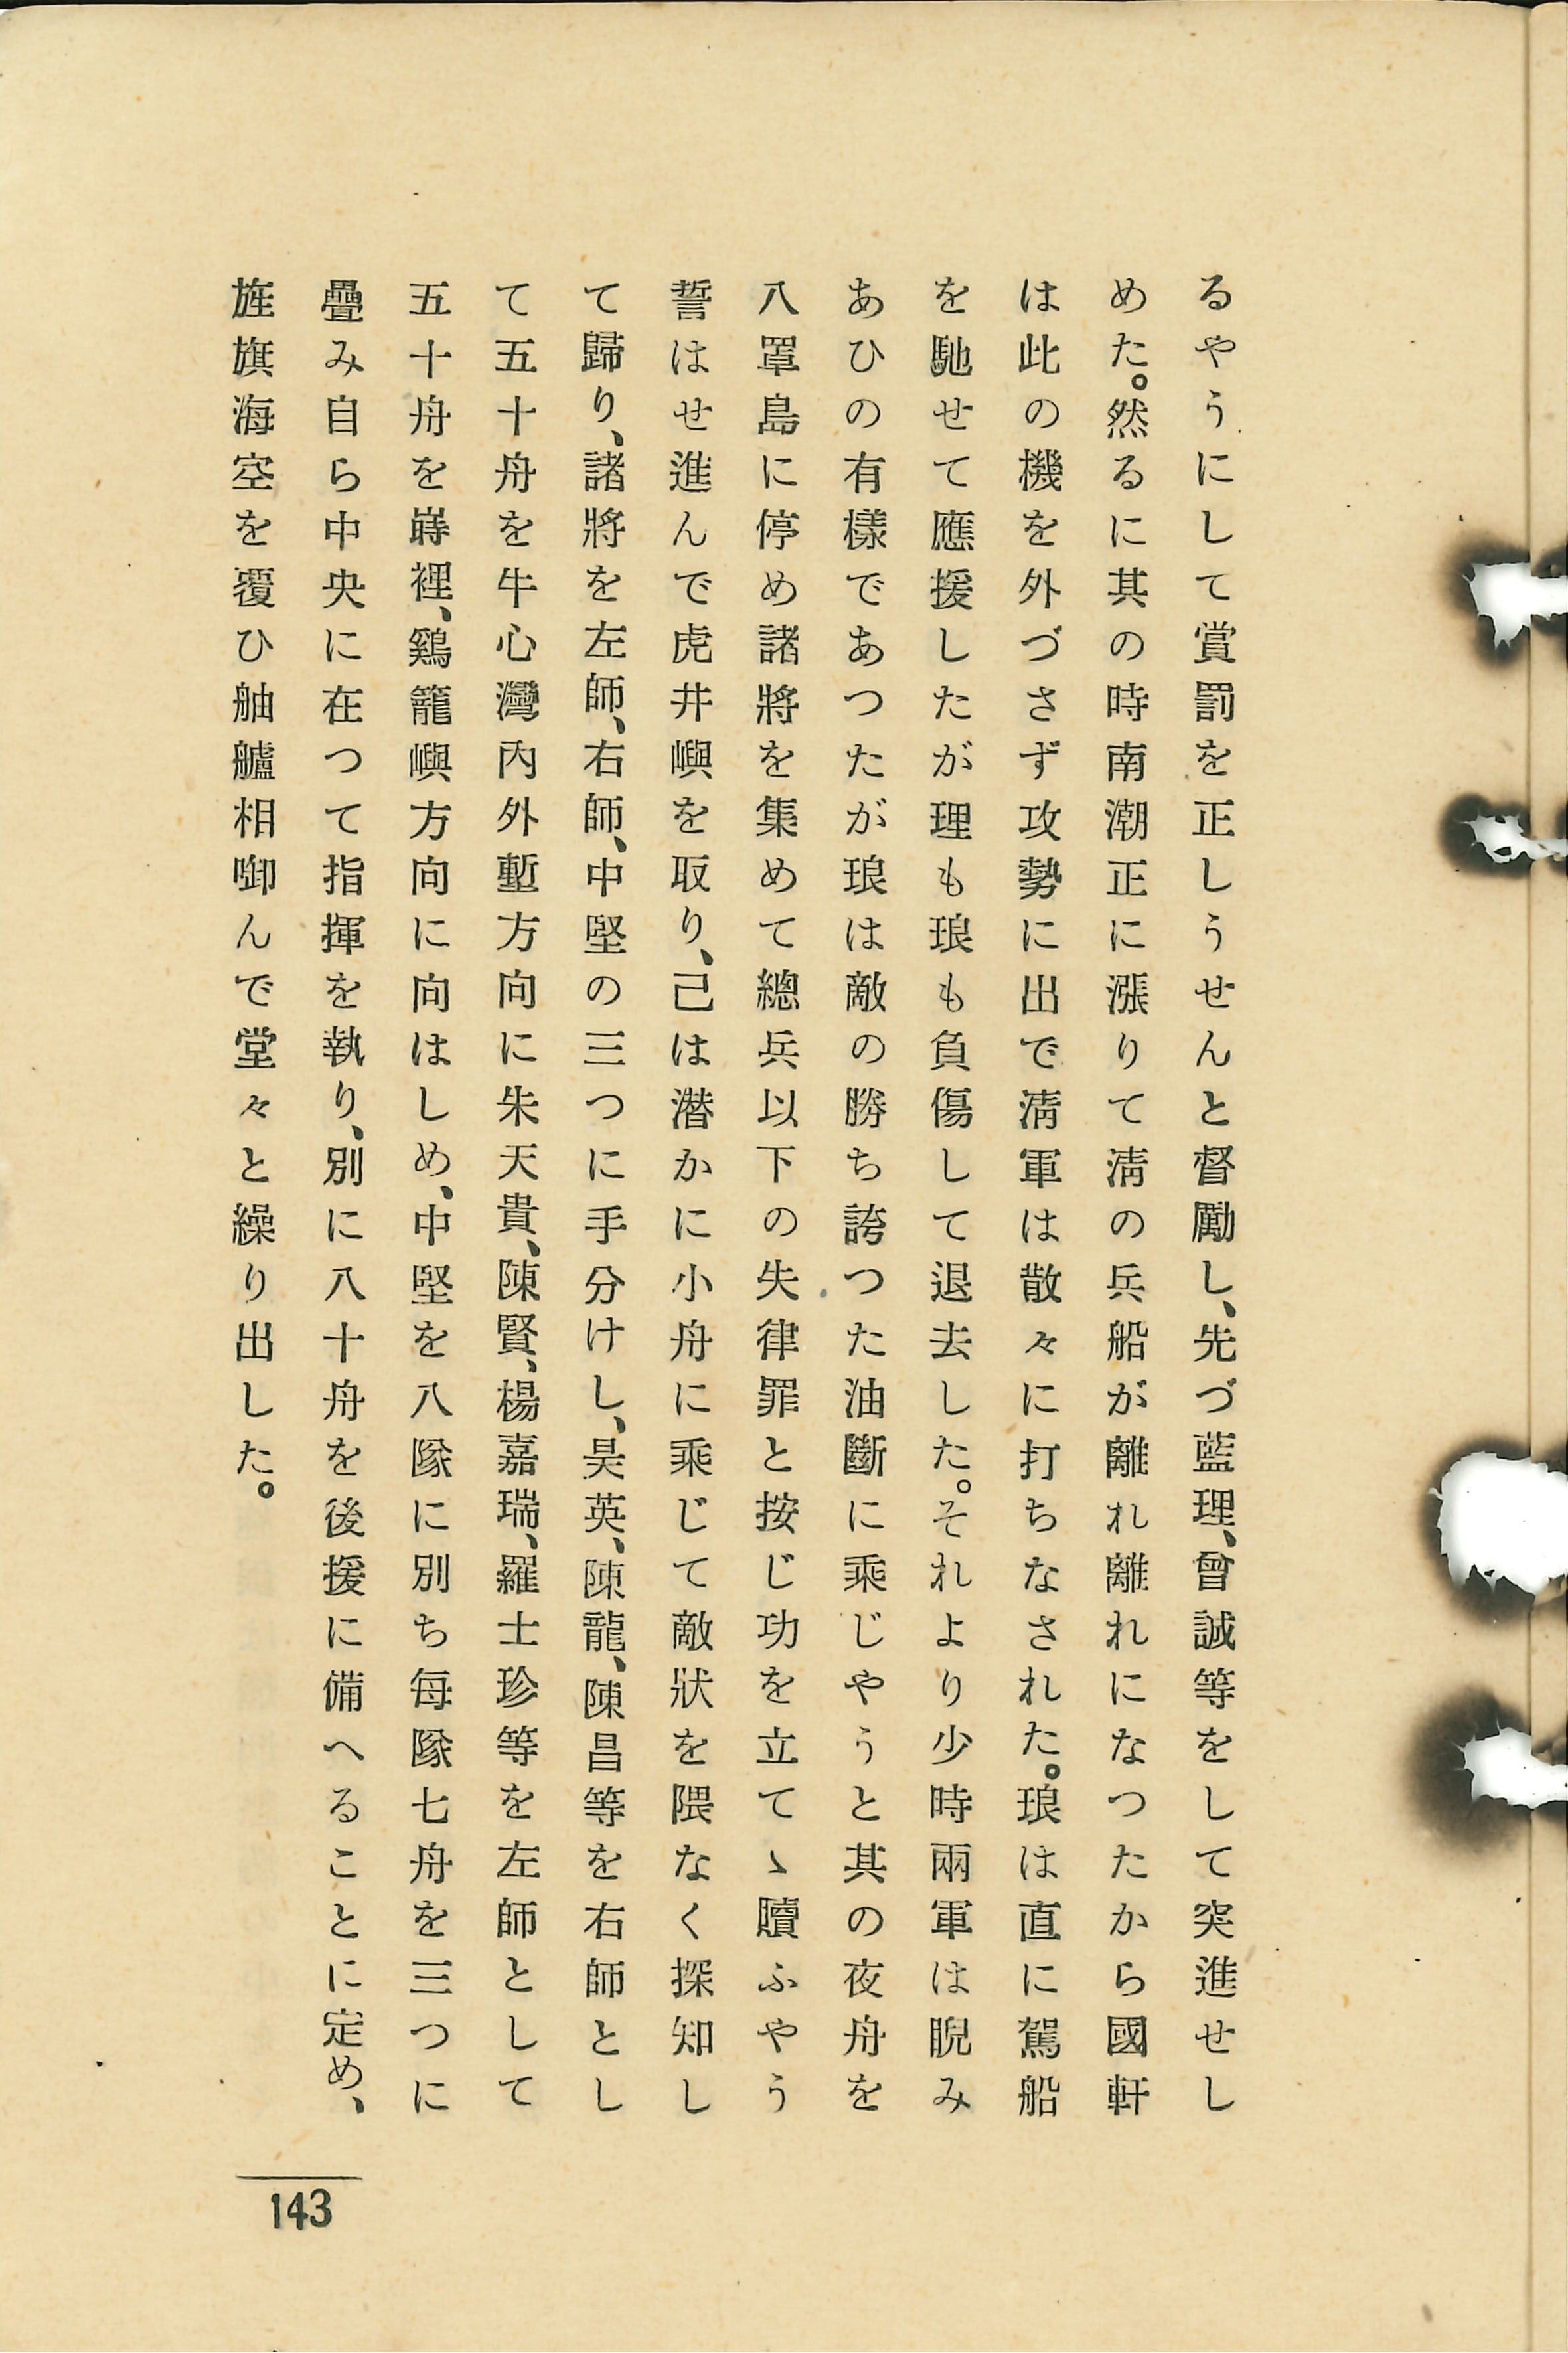 るやうにして賞罰を正しうせんと督勵し、先づ藍理、曾誠等をして突進せし
めた。然るに其の時南潮正に漲りて淸の兵船が離れ離れになつたから國軒
は此の機を外づさず攻勢に出で淸軍は散々に打ちなされた。琅は直に駕船
を馳せて應援したが理も琅も負傷して退去した。それより少時兩軍は睨み
あひの有樣であつたが琅は敵の勝ち誇つた油斷に乘じやうと其の夜舟を
八罩島に停め諸將を集めて總兵以下の失律罪と按じ功を立てゝ贖ふやう
誓はせ進んで虎井嶼を取り、己は潛かに小舟に乘じて敵狀を隈なく探知し
て歸り、諸將を左師、右師、中堅の三つに手分けし、吳英、陳龍、陳昌等を右師とし
て五十舟を牛心灣內外塹方向に朱天貴、陳賢、楊嘉瑞、羅士珍等を左師として
五十舟を嵵裡、鷄籠嶼方向に向はしめ、中堅を八隊に別ち每隊七舟を三つに
疊み自ら中央に在つて指揮を執り、別に八十舟を後援に備へることに定め、
旌旗海空を覆ひ舳艫相啣んで堂々と繰り出した。
143